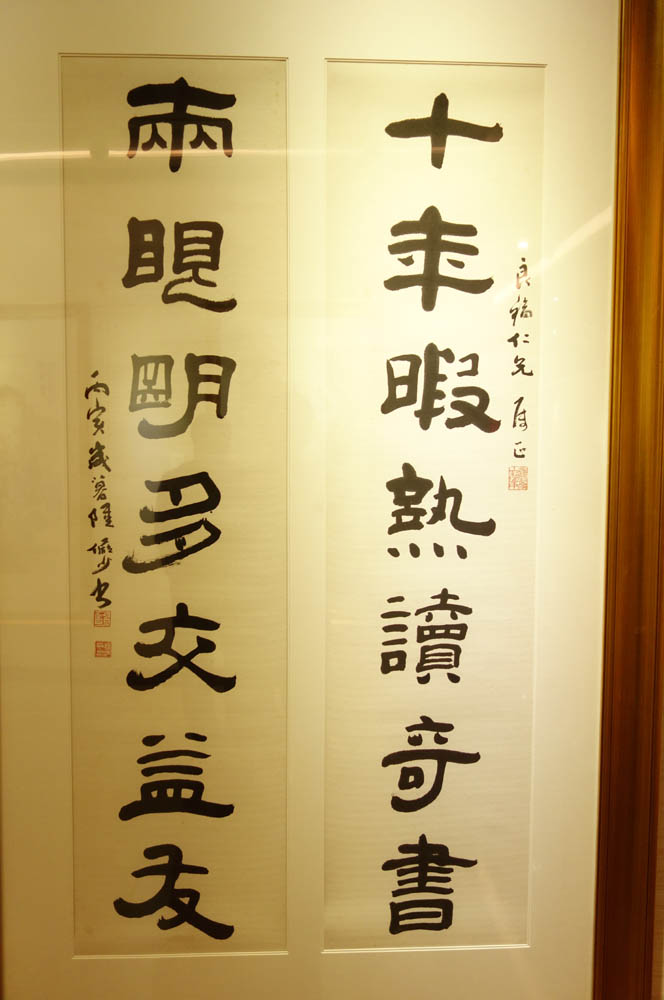 良鏞仁兄 屬正
十年暇熟讀奇書
兩眼明多交益友
丙寅歲暮陸儼少書